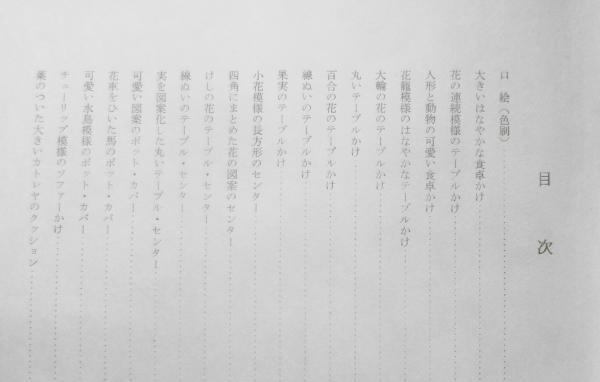 目次
口絵（色刷）
大きいはなやかな食卓かけ
花の連続模様のテーブルかけ
人形と動物の可愛い食卓かけ
花籠模様のはなやかなテーブルかけ
大輪の花のテーブルかけ
丸いテーブルかけ
百合の花のテーブルかけ
線ぬいのテーブルかけ
果実のテーブルかけ
小花模様の長方形のセンター
四角にまとめた花の図案のセンター
けしの花のテーブル・センター
線ぬいのテーブル・センター
実を図案化した丸いテーブル・センター
可愛い図案のポット・カバー
花車をひいた馬のポット・カバー
可愛い水鳥模様のポット・カバー
チューリップ模様のソファーかけ
葉のついた大きいカトレヤのクッション